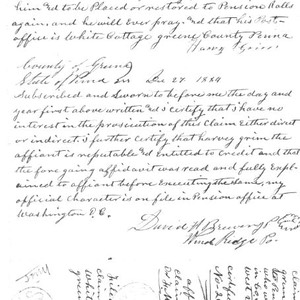 him &d to be Placed or restored to Pension Rolls
again. and he will Ever pray. &d that his Post
office is White Cottage greene County Penna
Harvy Grim
County of Greene
State of Penna SS Dec 27. 1884
Subscribed and Sworn to before me the day and
year first above written &d I certify that I have no
interest in the prosecution of this Claim Either direct
or indirect I further Certify that harvey grim the
affiant is reputable &d Entitled to Credit and that
the fore going affidavit was read and fully Expl-
ained to affiant before Executing the same, my
official Character is on file in Pension office at
Washington D.C.
David H Brewer
Wind Ridge Po.